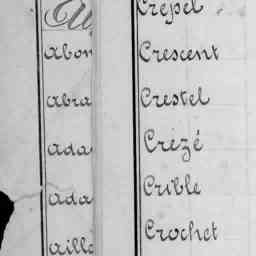 Crepel
Abon
Crescent
Abra
Crestel
Ada
Crezé
Crible
Ada
Crochet
Aille